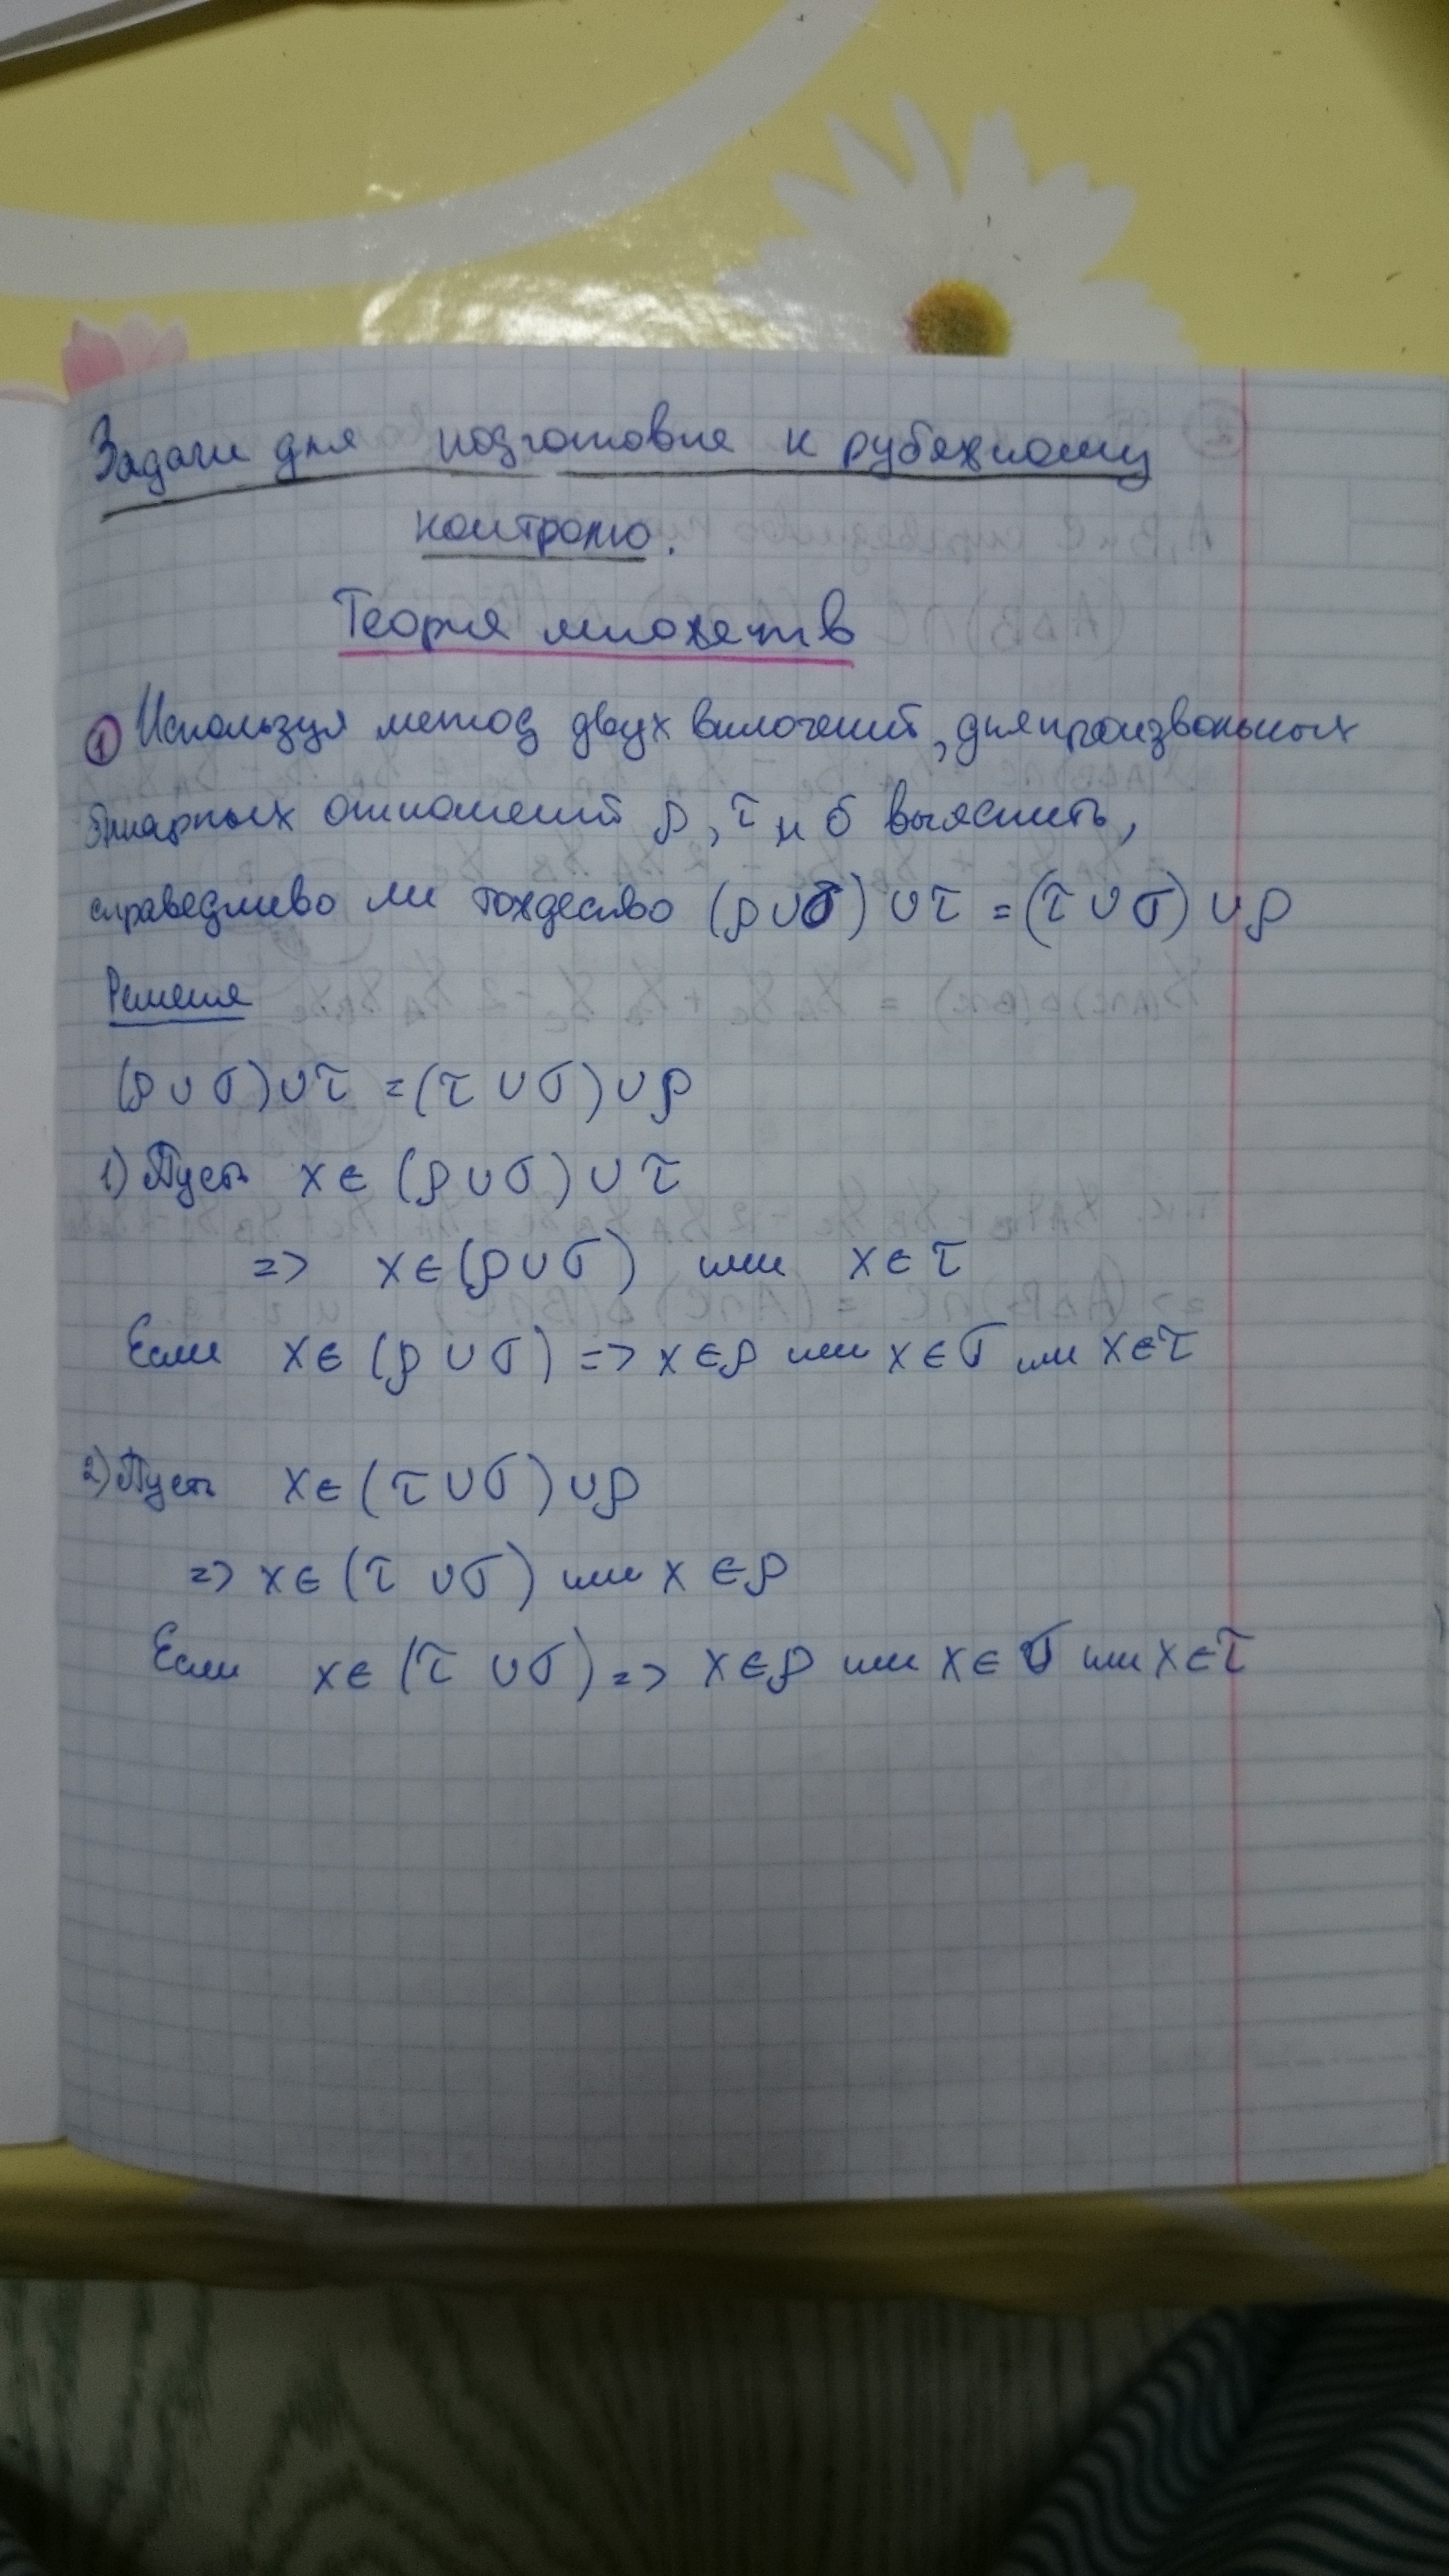 Задачи для подготовке к рубежному
контролю.
Теория множеств
① Используя метод двух включений, для произвольных
бинарных отношений ρ, τ и σ выяснить,
справедливо ли тождество (ρ∪σ)∪τ = (τ∪σ)∪ρ
Решение
(ρ∪σ)∪τ = (τ∪σ)∪ρ
1) Пусть x∈(ρ∪σ)∪τ
=> x∈(ρ∪σ) или x∈τ
Если x∈(ρ∪σ) => x∈ρ или x∈σ или x∈τ
2) Пусть x∈(τ∪σ)∪ρ
=> x∈(τ∪σ) или x∈ρ
Если x∈(τ∪σ) => x∈ρ или x∈σ или x∈τ